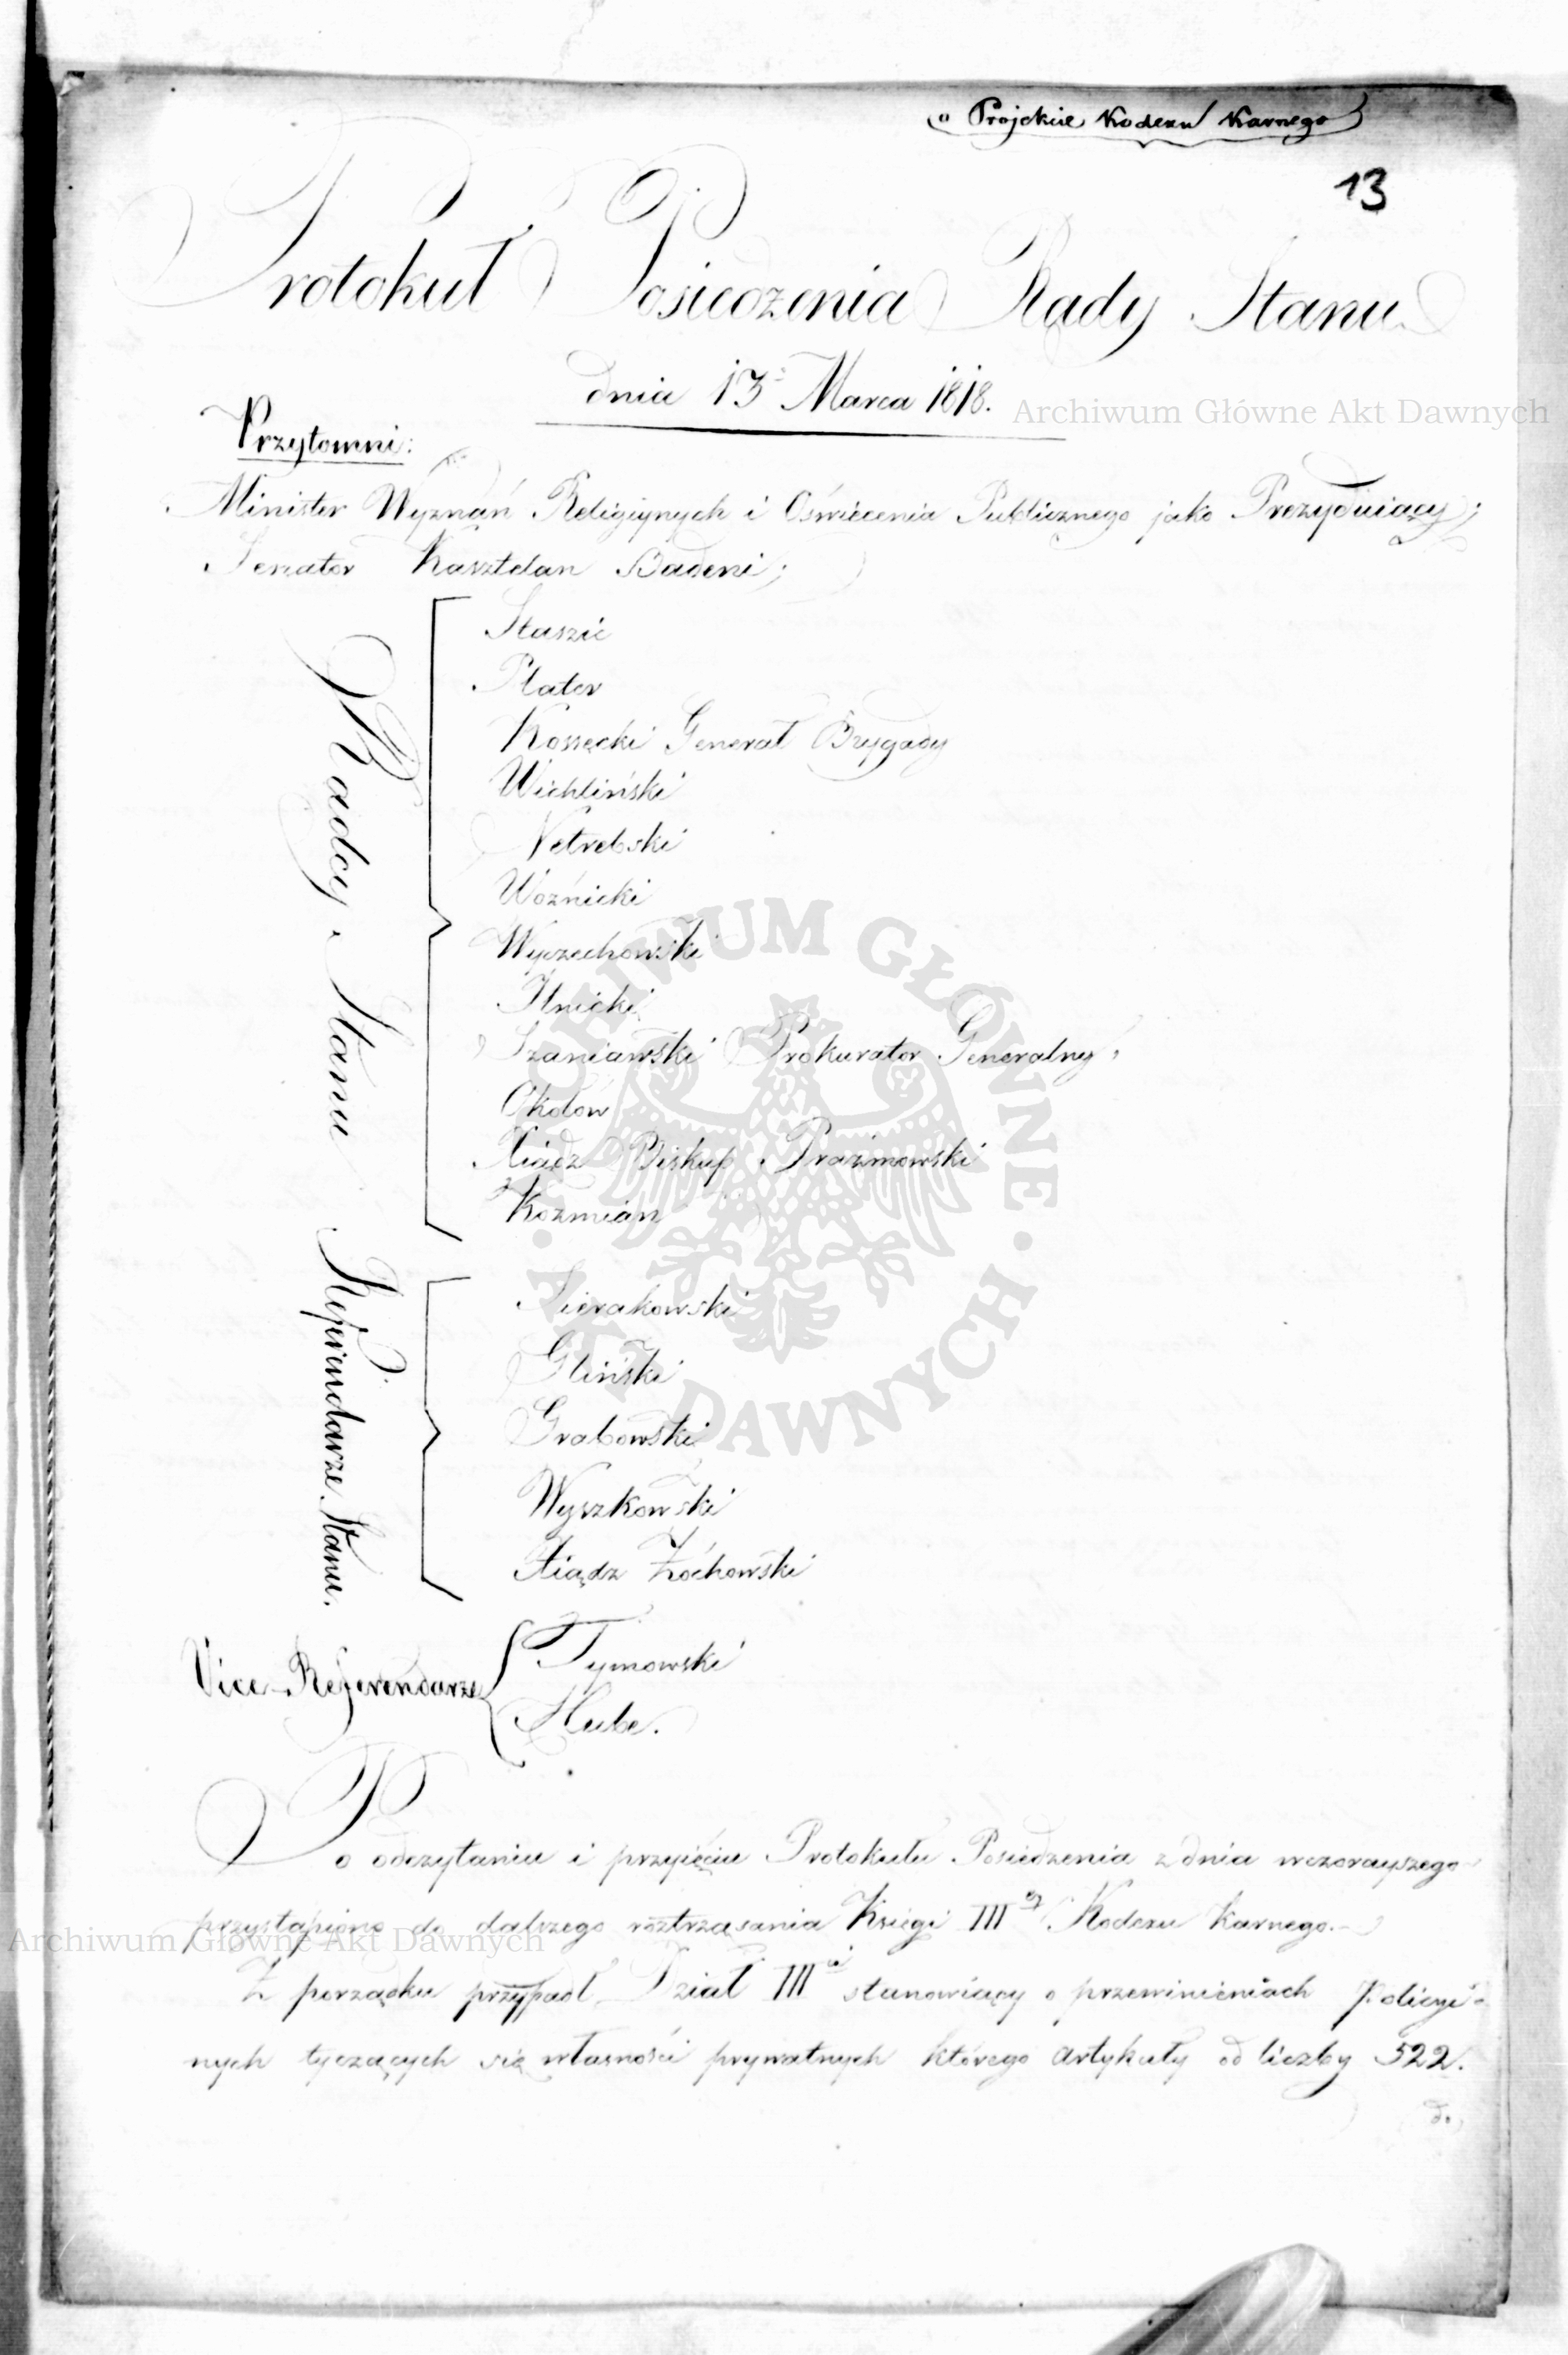 o Projekcie Kodexu Karnego
13
Protokuł Posiedzenia Rady Stanu
dnia 13 Marca 1818.
Archiwum Główne Akt Dawnych
Przytomni:
Minister Wyznań Religiynych i Oświecenia Publicznego jako Prezyduiący;
Senator Kasztelan Badeni;
Radcy Stanu
Staszic
Plater
Kossecki Generał Brygady
Wichliński
Netrebski
Woźnicki
Wyczechowski
Ilnicki
Szaniawski Prokurator Generalny
Okołow
Xiądz Biskup Prażmowski
Koźmian
Referendarze Stanu.
Sierakowski
Gliński
Grabowski
Wyszkowski
Xiądz Żóchowski
Vice-Referendarze
Tymowski
Hube.
ARCHIWUM GŁÓWNE · AKT DAWNYCH ·
Po odczytaniu i przyięciu Protokułu Posiedzenia z dnia wczorayszego
przystąpiono do dalszego roztrząsania Księgi III ey Kodexu Karnego.
Archiwum Główne Akt Dawnych
Z porządku przypadł Dział III ci stanowiący o przewinieniach Policyi-
nych tyczących się własności prywatnych którego artykuły od liczby 522.
do